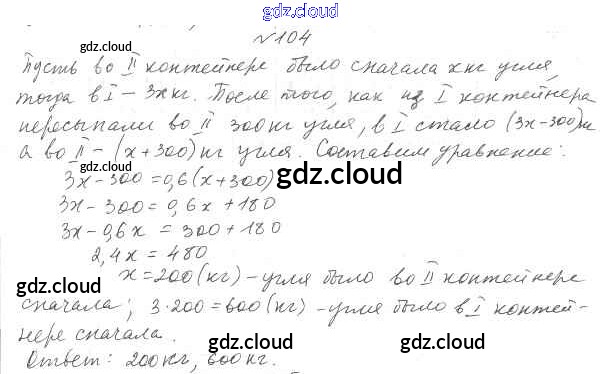 gdz.cloud
№104
gdz.cloud gdz.cloud
Пусть во II контейнере было сначала х кг угля,
тогда в I – 3х кг. После того, как из I контейнера
пересыпали во II 300 кг угля, в I стало (3х-300)кг
а во II – (х+300) кг угля. Составим уравнение:
3х-300=0,6(х+300)
gdz.cloud gdz.cloud
3х-300=0,6х+180
3х-0,6х = 300+180
2,4х=480
х=200(кг)-угля было во II контейнере
gdz.cloud gdz.cloud
сначала; 3·200=600(кг)-угля было в I контей-
нере сначала.
gdz.cloud gdz.cloud
Ответ: 200кг, 600кг.